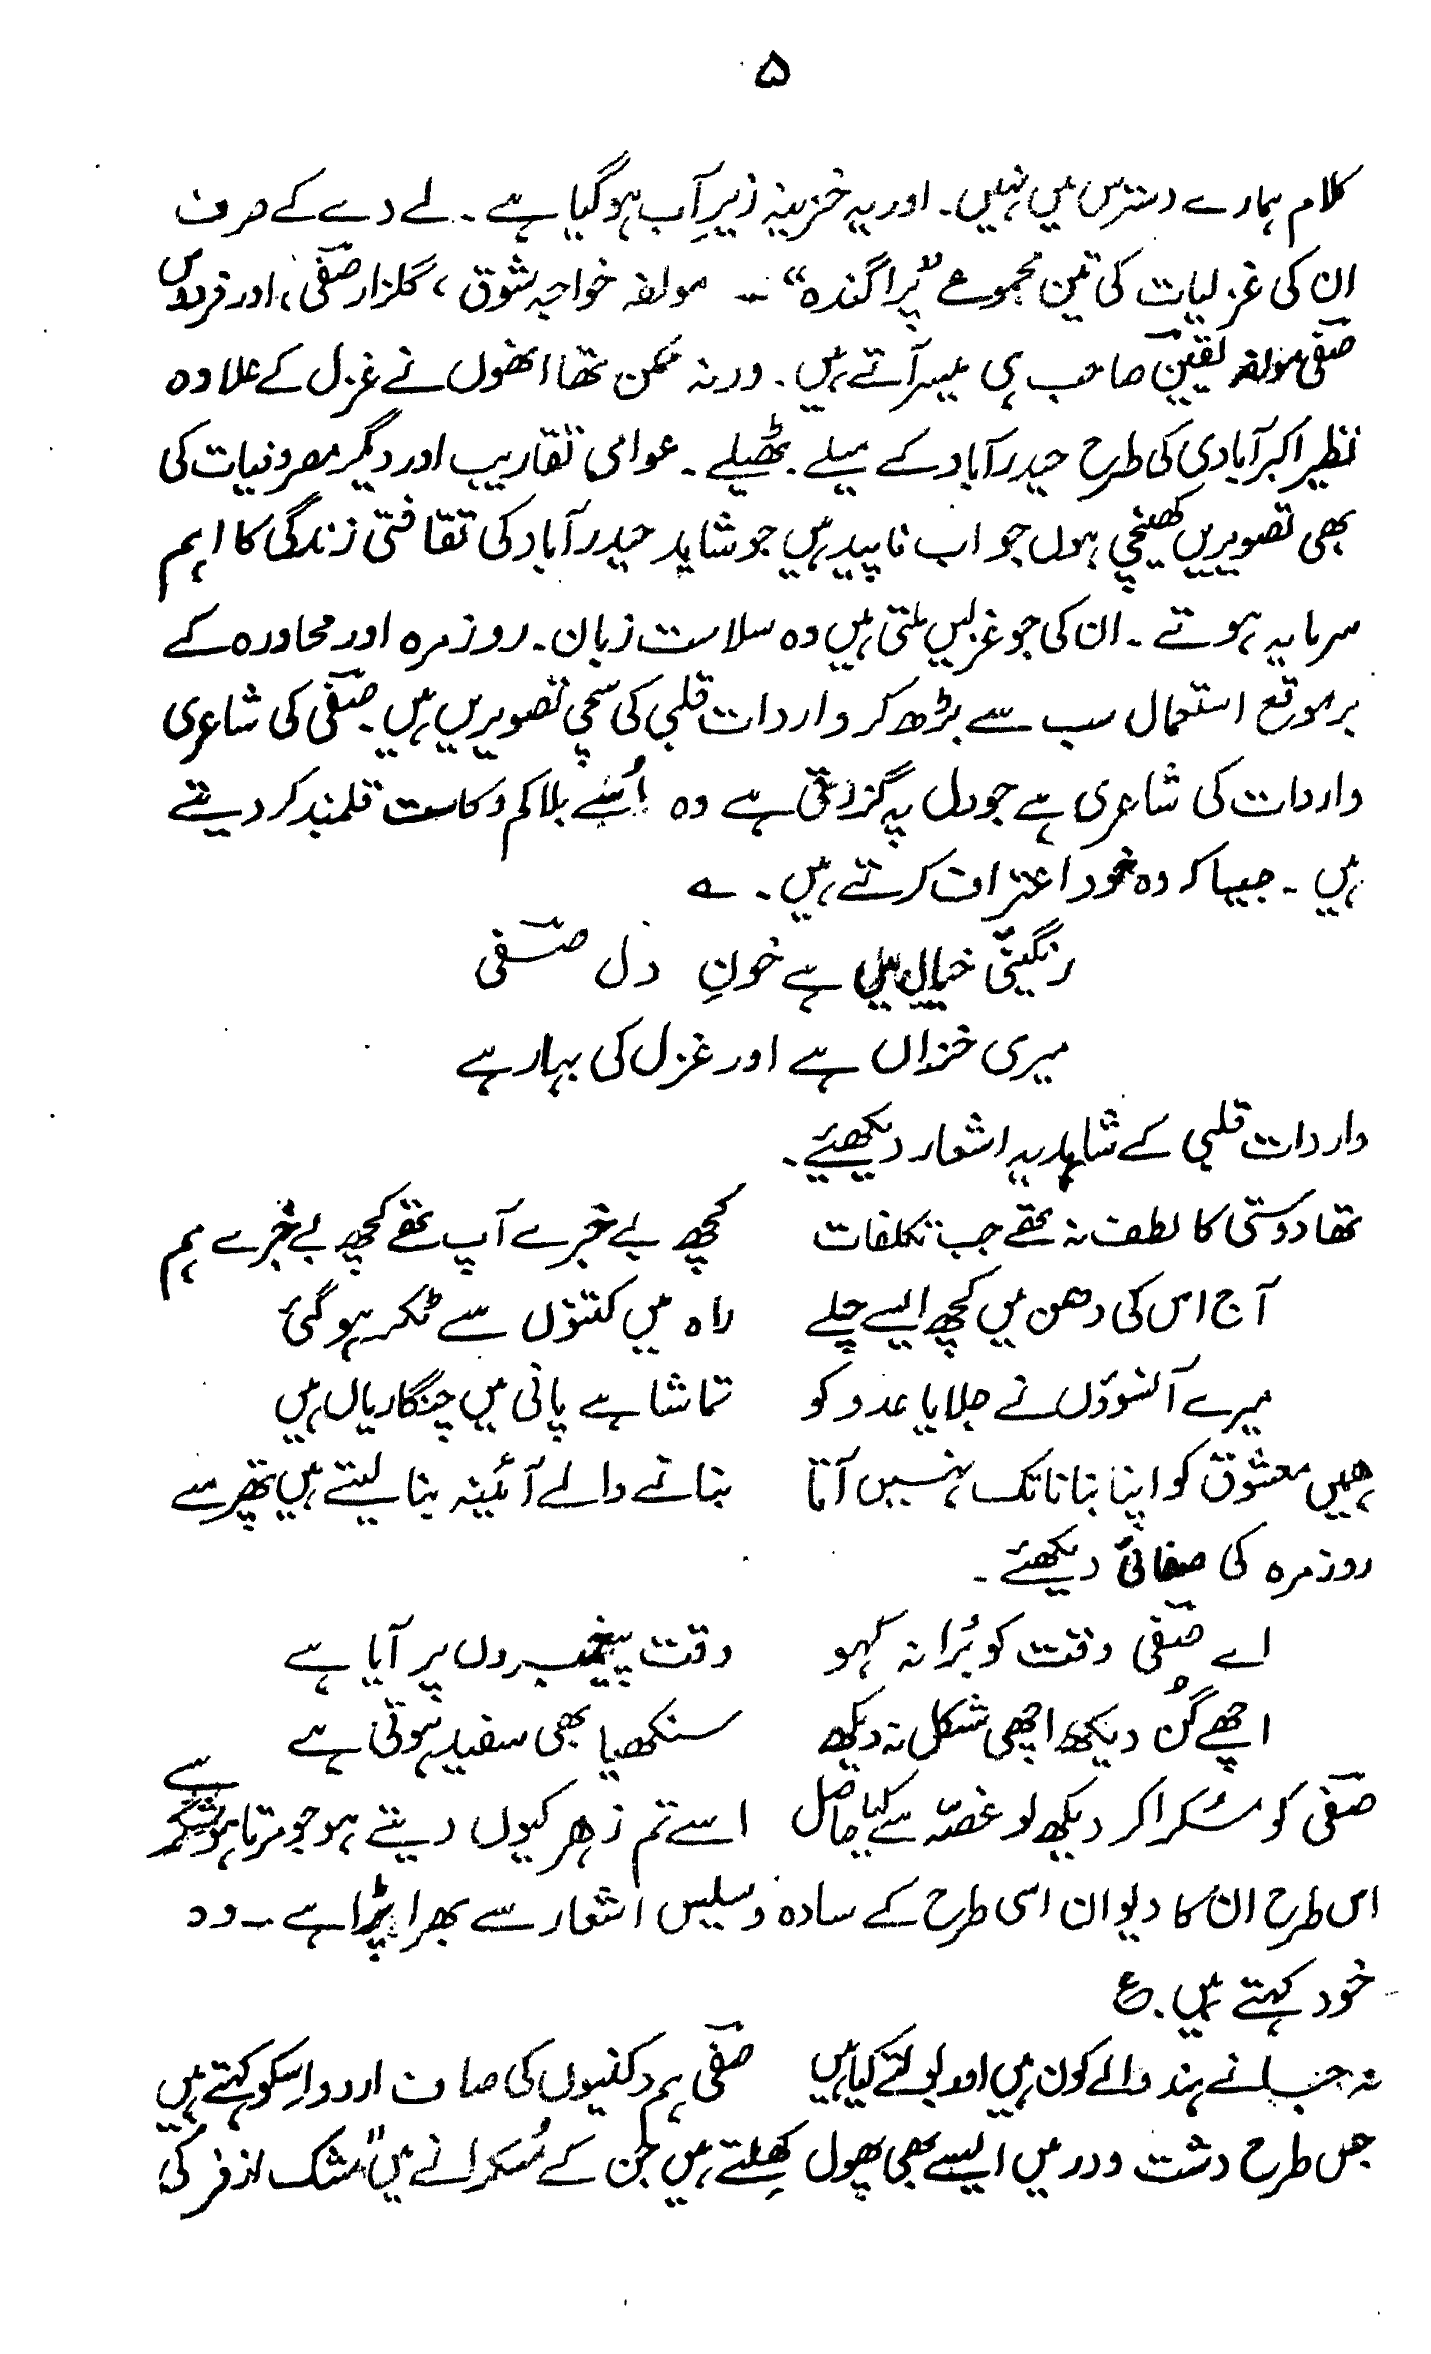 ۵
کلام ہمارے دسترس میں نہیں۔ اور یہ خزینہ زیرِ آب ہو گیا ہے۔ لے دے کے صرف
ان کی غزلیات کی تین مجموعے "پراگندہ" ـ مولفہ خواجہ شوق، گلزار صفی، اور فردوس
صفی مولفہ یقین صاحب ہی میسر آتے ہیں۔ ورنہ ممکن تھا انھوں نے غزل کے علاوہ
نظیر اکبر آبادی کی طرح حیدرآباد کے میلے۔ ٹھیلے۔ عوامی تقاریب اور دیگر مصروفیات کی
بھی تصویریں کھینچی ہوں جو اب ناپید ہیں جو شاید حیدرآباد کی ثقافتی زندگی کا اہم
سرمایہ ہوتے۔ ان کی جو غزلیں ملتی ہیں وہ سلاست زبان۔ روزمرہ اور محاورہ کے
برموقع استعمال سب سے بڑھ کر واردات قلبی کی سچی تصویریں ہیں۔ صفی کی شاعری
واردات کی شاعری ہے جو دل پہ گزرتی ہے وہ اُسے بلاکم وکاست قلمبند کر دیتے
ہیں۔ جیسا کہ وہ خود اعتراف کرتے ہیں۔ ؎
رنگینیٔ خیال میں ہے خونِ دل صفی
میری خزاں ہے اور غزل کی بہار ہے
واردات قلبی کے شاہد یہ اشعار دیکھئے۔
تھا دوستی کا لطف نہ تھے جب تکلفات کچھ بے خبرے آپ تھے کچھ بے خبرے ہم
آج اس کی دھن میں کچھ ایسے چلے راہ میں کتنوں سے ٹکر ہو گئی
میرے آنسوؤں نے جلایا عدو کو تماشا ہے پانی میں چنگاریاں ہیں
ہمیں معشوق کو اپنا بنانا تک نہیں آتا بنانے والے آئینہ بنا لیتے ہیں پتھر سے
روزمرہ کی صفائی دیکھئے۔
اے صفی وقت کو بُرا نہ کہو وقت پیغمبروں پر آیا ہے
اچھے گُن دیکھ اچھی شکل نہ دیکھ سنکھیا بھی سفید ہوتی ہے
صفی کو مسُکرا کر دیکھ لو غصّہ سے کیا حاصل اسے تم زہر کیوں دیتے ہو جو مرتا ہو شکر سے
اس طرح ان کا دیوان اسی طرح کے سادہ وسلیس اشعار سے بھرا پڑا ہے۔ وہ
خود کہتے ہیں۔ ع
نہ جانے ہند والے کون ہیں اور بولتے کیا ہیں صفی ہم دکنیوں کی صاف اردو اسکو کہتے ہیں
جس طرح دشت و در میں ایسے بھی پھول کھلتے ہیں جن کے مُسکرانے میں "مشک ازفر کی